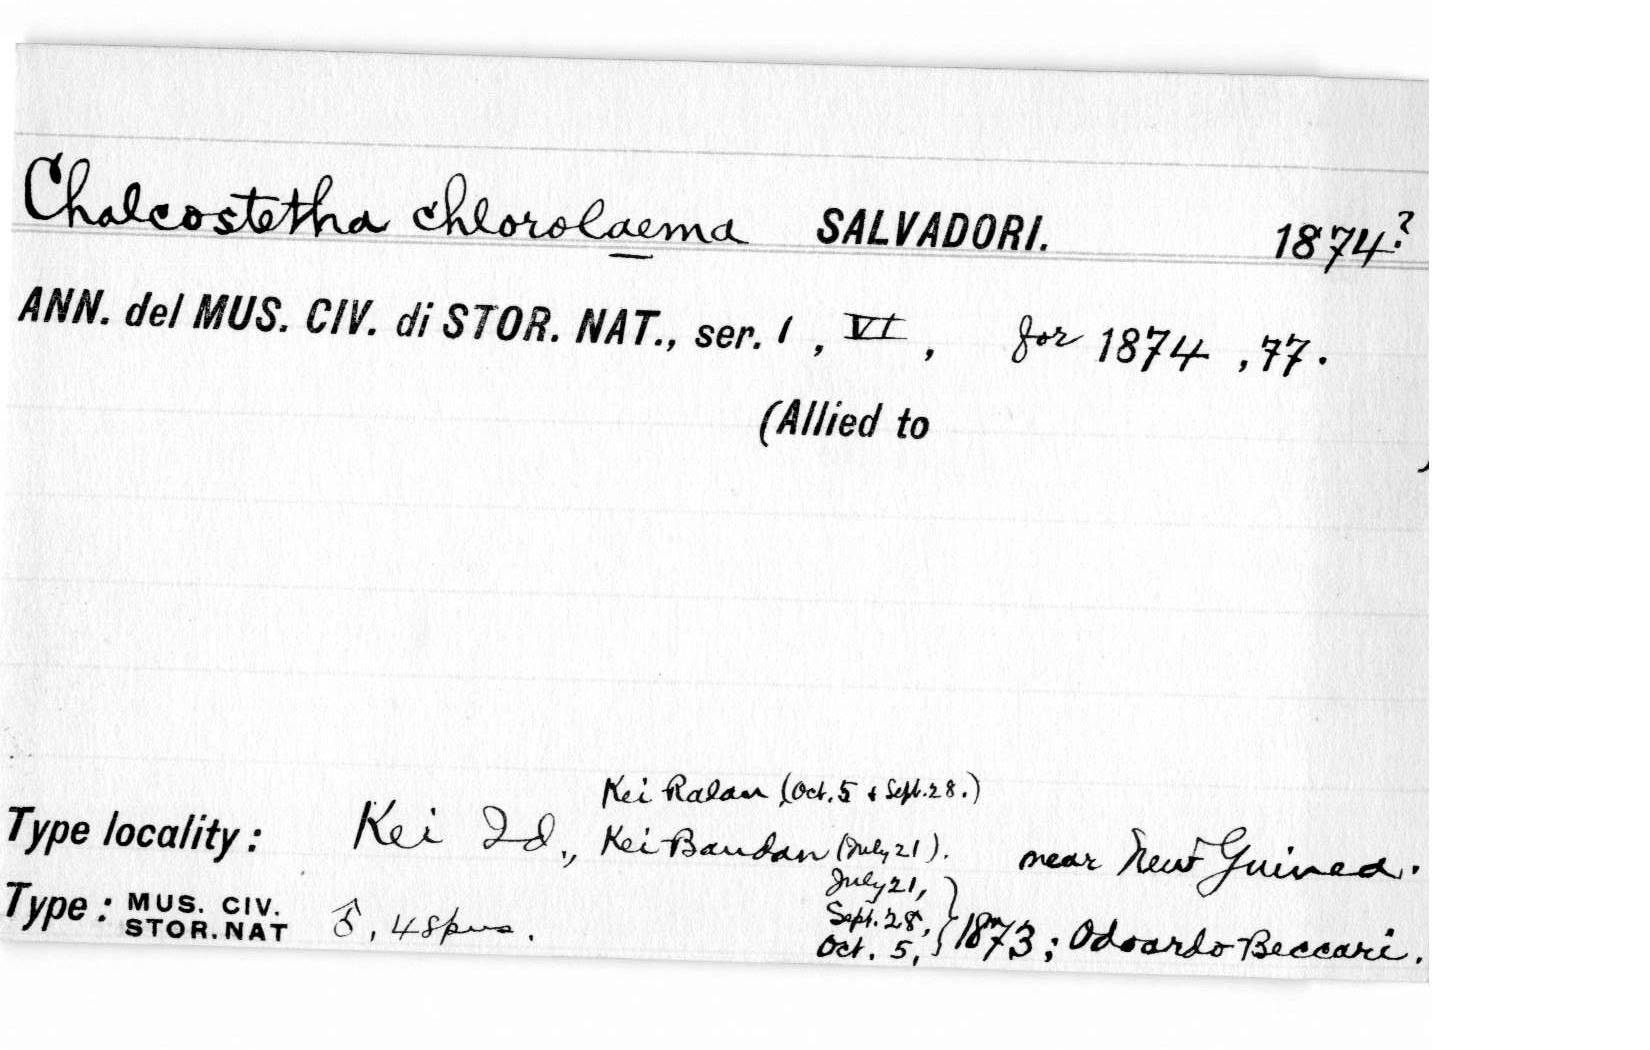 Chalcostetha chlorolaema SALVADORI. 1874?
ANN. del MUS. CIV. di STOR. NAT., ser. 1, VI, for 1874, 77.
(Allied to )
Kei Ralan (Oct. 5 & Sept. 28.)
Type locality: Kei Id., Kei Bandan (July 21). near New Guinea.
July 21,
Type: MUS. CIV. STOR. NAT ♂, 4 spms. Sept. 28, } 1873; Odoardo Beccari.
Oct. 5,